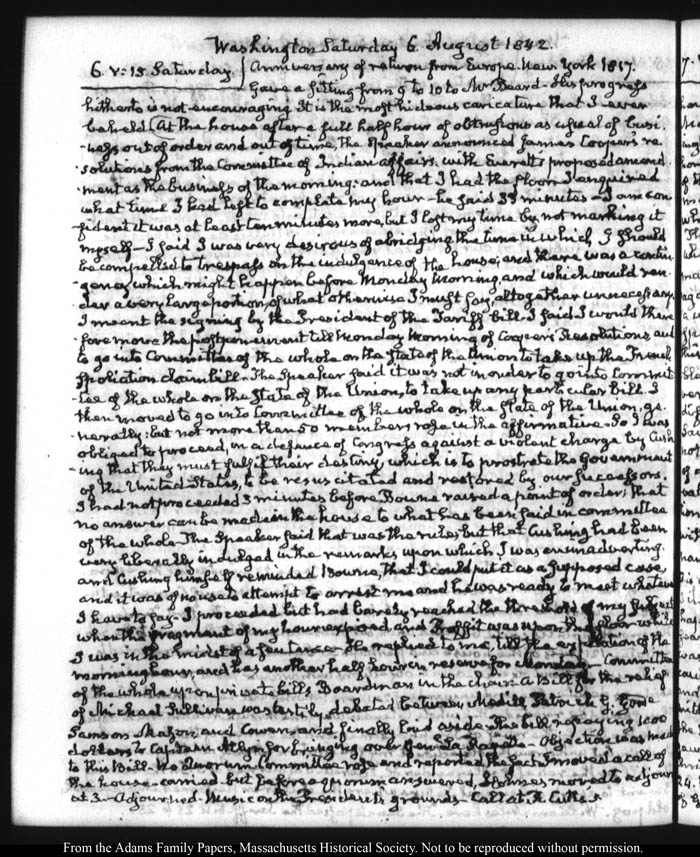 Washington Saturday 6. August 1842.
6. V:15. Saturday. Anniversary of return from Europe. New York 1817.
Gave a sitting from 9 to 10 to Mr Beard. His progress
hitherto is not encouraging. It is the most hideous caricature that I ever
beheld. At the house after a full half hour of obtrusions as usual of busi-
-ness out of order and out of time, the Speaker announced James Cooper's re-
solutions from the Committee of Indian affairs, with Everett's proposed amend-
-ment as the business of the morning: and that I had the floor. I enquired
what time I had left to complete my hour—he said 35 minutes—I am con-
-fident it was at least ten minutes more, but I lost my time by not marking it
myself—I said I was very desirous of abridging the time in which I should
be compelled to trespass on the indulgence of the house, and there was a contin-
-gency which might happen before Monday Morning, and which would ren-
-der a very large portion, of what otherwise I must say, altogether unnecessary.
I meant the signing by the President of the Tariff bill. I said I would there-
fore move the postponement till Monday Morning of Cooper's Resolutions and
to go into Committee of the whole on the State of the Union to take up the French
Spoliation claim bill. The Speaker said it was not in order to go into Commit-
-tee of the whole on the State of the Union, to take up any particular Bill. I
then moved to go into Committee of the whole on the State of the Union, ge-
-nerally: but not more than 50 members rose in the affirmative. So I was
obliged to proceed, in a defence of Congress against a violent charge by Cush-
-ing that they must fulfil their destiny, which is to prostrate the Government
of the United States, to be resuscitated and restored by our successors.
I had not proceeded 3 minutes before Bowne raised a point of order, that
no answer can be made in the house to what has been said in committee
of the whole. The Speaker said that was the rule, but that Cushing had been
very liberally indulged in the remarks upon which I was animadverting.
and Cushing himself reminded Bowne, that I could put it as a supposed case,
and it was of no use to attempt to arrest me and he was ready to meet whatever
I have to say. I proceeded but had barely reached the threshold of my subject
when the fragment of my hour expired and Proffit was upon the floor while
I was in the midst of a sentence. He replied to me, till the expiration of the
morning hour, and has another half hour in reserve for Monday—Committee
of the whole upon private bills, Boardman in the chair. A Bill for the relief
of Michael Sullivan was testily debated between Medill, Patrick G. Goode
Samson Mason, and Cowen, and finally laid aside. The bill repaying 1000
dollars to Captain for bringing over General—Objection was made
to this Bill. No Quorum. Committee rose and reported the fact. I moved a call of
the house—carried. but before a quorum answered, Holmes moved to adjourn
at 3.—Adjourned. Music on the President's grounds—Call at R. Cutts's.
From the Adams Family Papers, Massachusetts Historical Society. Not to be reproduced without permission.